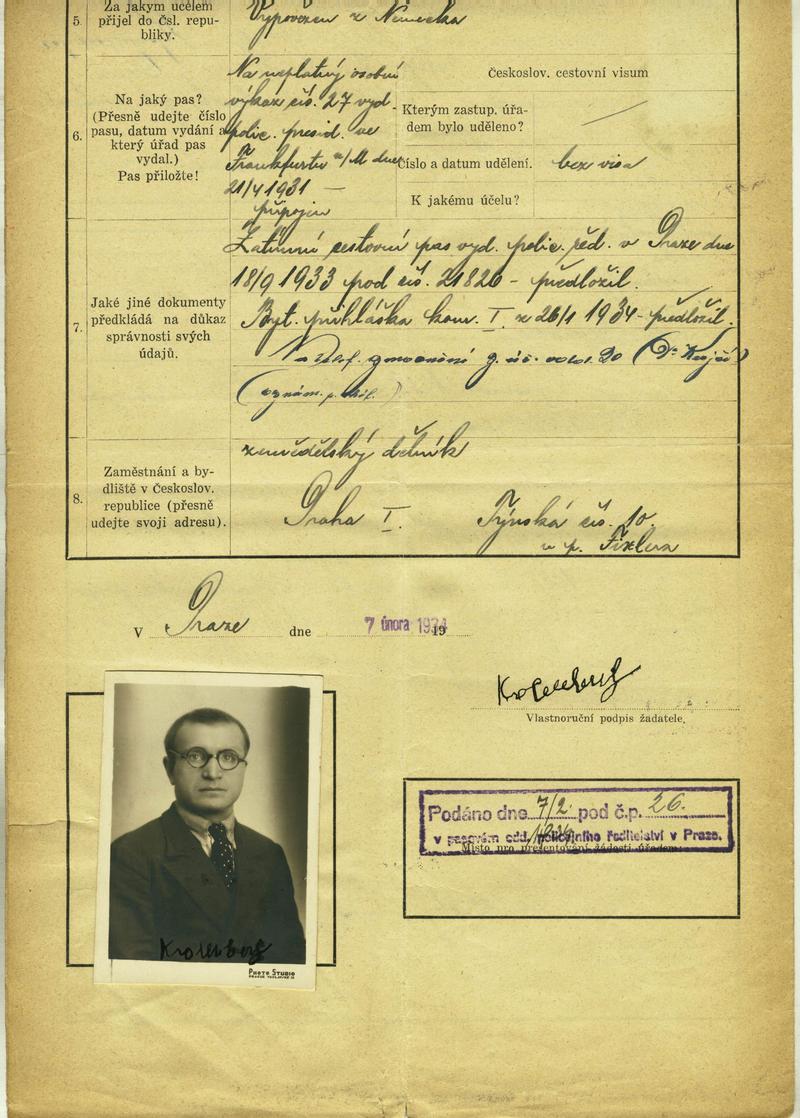 5.
Za jakým účelem
přijel do Čsl. repu-
bliky.
Vypovězen z Německa
6.
Na jaký pas?
(Přesně udejte číslo
pasu, datum vydání a
který úřad pas
vydal.)
Pas přiložte!
Na neplatný osobní
výkaz čís. 27 vyd.
polic. presid. ve
Frankfurtu a/M dne
21/4 1931 —
připojen
Českoslov. cestovní visum
Kterým zastup. úřa-
dem bylo uděleno?
Číslo a datum udělení.
bez visa
K jakému účelu?
7.
Jaké jiné dokumenty
předkládá na důkaz
správnosti svých
údajů.
Zatímní cestovní pas vyd. polic. řed. v Praze dne
18/9 1933 pod čís. 21826 - předložil.
Byt. přihláška kom. I. z 26/1 1934 - předložil.
8.
Zaměstnání a by-
dliště v Českoslov.
republice (přesně
udejte svoji adresu).
zemědělský dělník
Praha I. Týnská čís. 10.
u p. Fixlera
V Praze dne 7 února 1934 19
Vlastnoruční podpis žadatele.
Photo Studio
Podáno dne 7/2. pod č.p. 26.
v pasovém odd. policejního ředitelství v Praze.
Místo pro presentování žádosti úřadem.